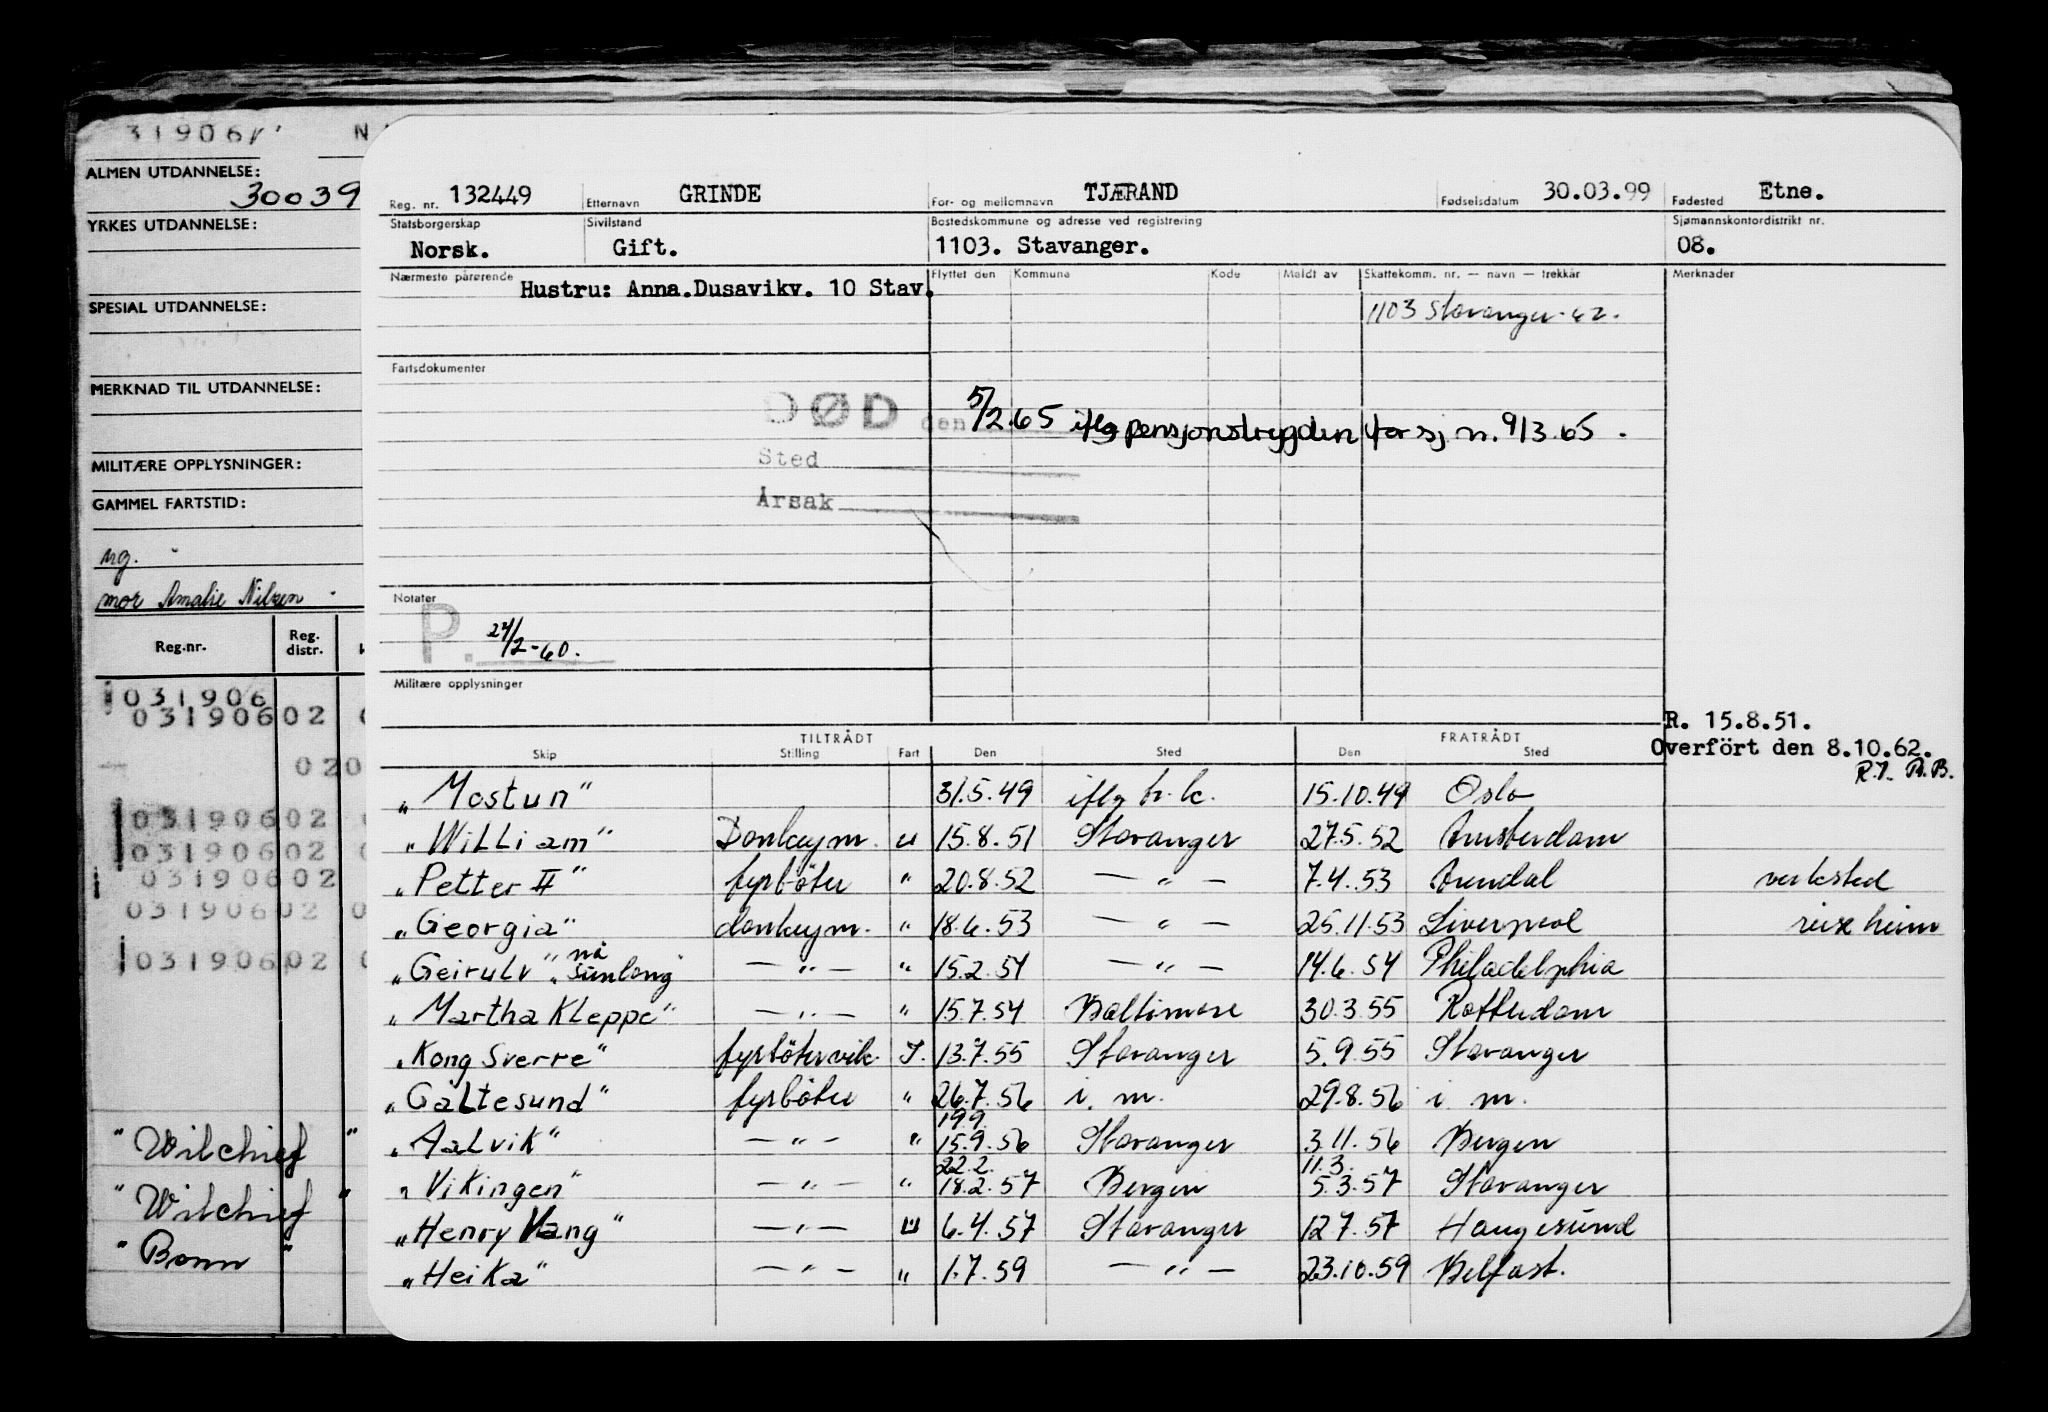 319061 N
ALMEN UTDANNELSE:
30039
YRKES UTDANNELSE:
SPESIAL UTDANNELSE:
MERKNAD TIL UTDANNELSE:
MILITÆRE OPPLYSNINGER:
GAMMEL FARTSTID:
ug.
mor Amalie Nilsen
Reg.nr. Reg. distr.
031906
03190602 0
020
03190602 0
03190602 0
03190602
03190602 0
03190602 0
"Wilchief"
"Wilchief"
"Bonn"
Reg. nr. 132449 Etternavn GRINDE For- og mellomnavn TJÆRAND Fødselsdatum 30.03.99 Fødested Etne.
Statsborgerskap Sivilstand Bostedskommune og adresse ved registrering Sjømannskontordistrikt nr.
Norsk. Gift. 1103. Stavanger. 08.
Nærmeste pårørende Flyttet den Kommune Kode Meldt av Skattekomm. nr. — navn — trekkår Merknader
Hustru: Anna.Dusavikv. 10 Stav.
1103 Stavanger - 62.
Fartsdokumenter
DØD den 5/2.65 iflg pensjonstrygden for sj n. 9/3.65.
Sted
Årsak
Notater
P. 24/2-60.
Militære opplysninger
R. 15.8.51.
TILTRÅDT FRATRÅDT
Overfört den 8.10.62.
Skip Stilling Fart Den Sted Den Sted
R.J. A.B.
"Mostun" 31.5.49 iflg h.k. 15.10.49 Oslo
"William" Donkeym. u 15.8.51 Stavanger 27.5.52 Amsterdam
"Petter II" fyrböter " 20.8.52 — " — 7.4.53 Arendal verksted
"Georgia" donkeym. " 18.6.53 — " — 25.11.53 Liverpool reise heim
"Geirulv" nå "Sunlong" — " — " 15.2.54 — " — 14.6.54 Philadelphia
"Martha Kleppe" — " — " 15.7.54 Baltimore 30.3.55 Rotterdam
"Kong Sverre" fyrbötervik. I. 13.7.55 Stavanger 5.9.55 Stavanger
"Galtesund" fyrböter " 26.7.56 i. m. 29.8.56 i. m.
19.9.
"Aalvik" — " — " 15.9.56 Stavanger 3.11.56 Bergen
22.2. 11.3.
"Vikingen" — " — " 18.2.57 Bergen 5.3.57 Stavanger
"Henry Vang" — " — U 6.4.57 Stavanger 12.7.57 Haugesund
"Heika" — " — " 1.7.59 — " — 23.10.59 Belfast.